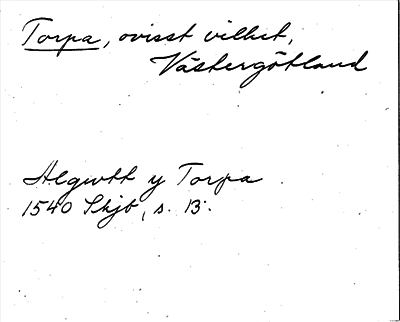 Torpa, ovisst vilket,
Västergötland
Algutth y Torpa
1540 Skjb, s. 13.